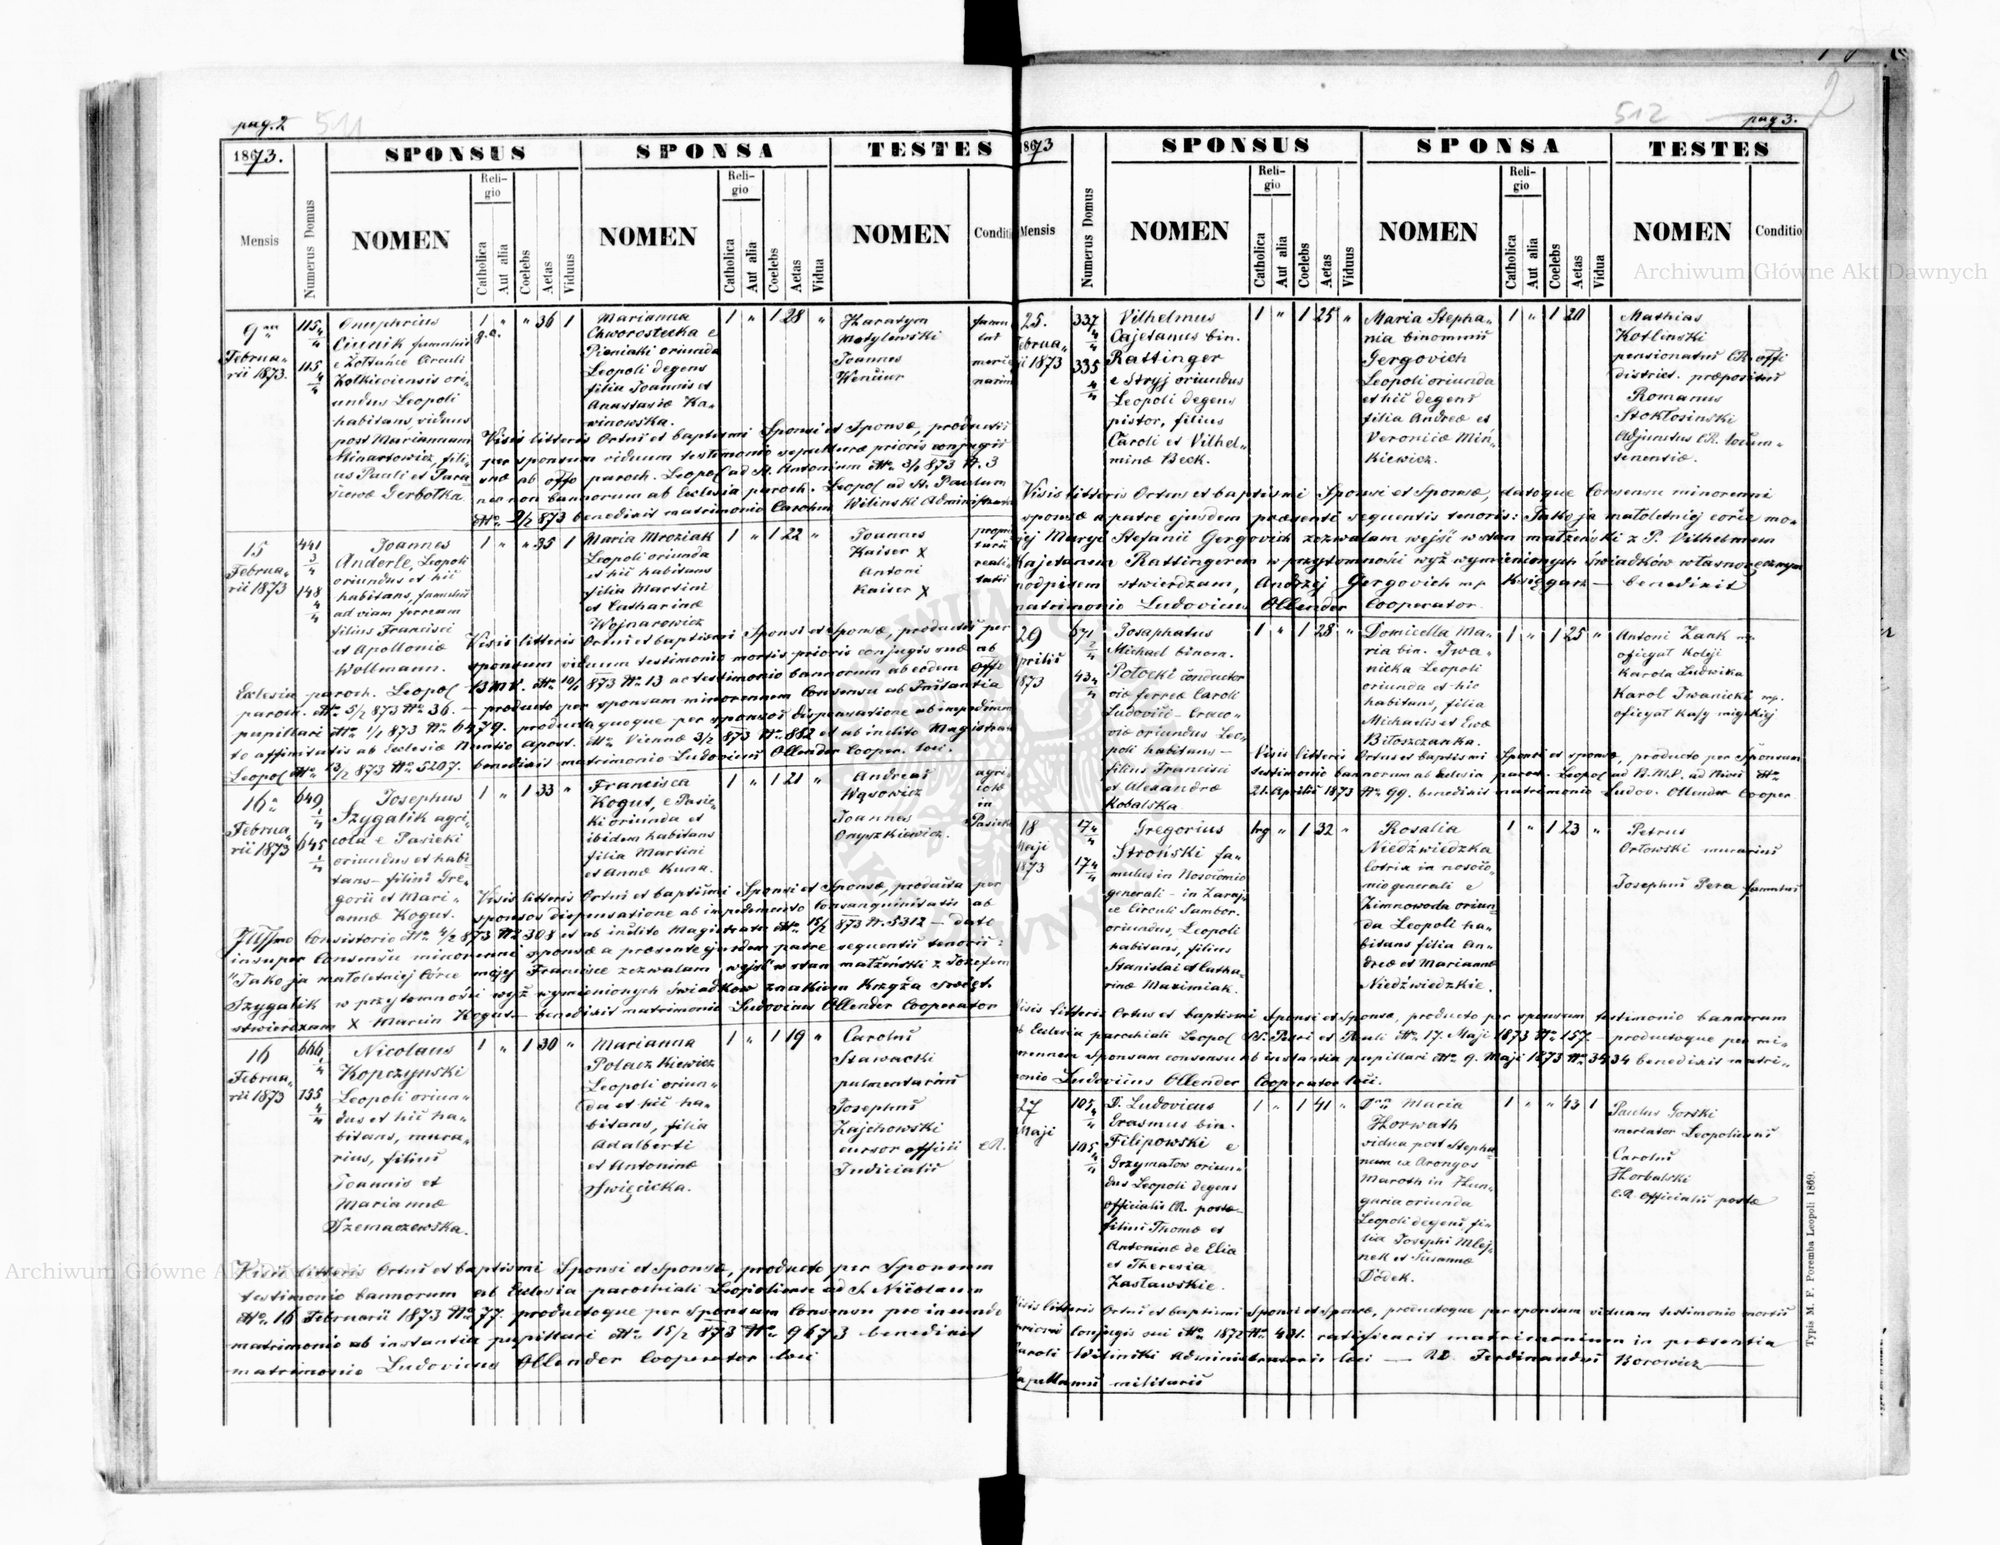 pag. 2 511
1873.
SPONSUS SPONSA TESTES
Mensis
Numerus Domus
NOMEN
Religio
Catholica
Aut alia
Coelebs
Aetas
Viduus
NOMEN
Religio
Catholica
Aut alia
Coelebs
Aetas
Vidua
NOMEN
Conditi
9na
Februa-
rii 1873.
115 4/4
115 4/4
Onuphrius
Ciunik famulus
e Żółtańce Circuli
Żółkieviensis ori-
undus Leopoli
habitans, viduus
post Mariannam
fili-
us Pauli et Para-
scevae Gerbotka
1 g.c. " " 36 1
Marianna
Chworostecka e
Pieniaki oriunda
Leopoli degens
filia Joannis et
Anastasiae Ka-
winowska.
1 " 1 28 "
Haratym
Motylewski
Joannes
Wenüier
Visis litteris Ortus et baptismi Sponsi et Sponsae, productis
per sponsum viduum testimonio sepulturae prioris conjugis
suae ab offo paroch. Leopol ad St. Antonium dto. 3/2 873 N. 3
nec non bannorum ab Ecclesia paroch. Leopol ad St. Paulum
dto. 9/2 873 benedixit matrimonio Carolus Wilinski Administrator
15
Februa-
rii 1873
441 3/4
148 4/4
Joannes
Anderle, Leopoli
oriundus et hic
habitans, famulus
ad viam ferream
filius Francisci
et Apolloniae
Wollmann.
1 " " 35 1
Maria Mroziak
Leopoli oriunda
et hic habitans
filia Martini
et Catharinae
Wojnarowicz
1 " 1 22 "
Joannes
Kaiser X
Antoni
Kaiser X
proprie
tarii
reali-
tatis
Visis litteris Ortus et baptismi Sponsi et Sponsae, productis per
sponsum viduum testimonio mortis prioris conjugis suae ab
Ecclesia paroch. Leopol B.M.V. dto. 10/1 873 No. 13 ac testimonio bannorum ab eodem offo
paroch. dto. 5/2 873 No. 36. — producto per sponsam minorennem Consensu ab Instantia
pupillari dto. 1/1 873 No. 6479. producta quoque per sponsos dispensatione ab impedimen
to affinitatis ab Ecclesiae Nuntio Apost. dto. Viennae 3/2 873 No. 882 et ab inclito Magistratu
Leopol dto. 13/2 873 No. 5207. benedixit matrimonio Ludovicus Ollender Cooper. loci.
16a
Februa-
rii 1873
649 1/4
645 1/4
Josephus
Szygalik agri-
cola e Pasieki
oriundus et habi-
tans — filius Gre-
gorii et Mari-
annae Kogut.
1 " 1 33 "
Francisca
Kogut, e Pasie-
ki oriunda et
ibidem habitans
filia Martini
et Annae Kuna.
1 " 1 21 "
Andreas
Wąsowicz
Joannes
Onyszkiewicz.
agri-
colae
in
Pasieki
Visis litteris Ortus et baptismi Sponsi et Sponsae, producta per
sponsos dispensatione ab impedimento Consanguinitatis ab
Illssmo Consistorio dto. 4/2 873 No. 308 et ab inclito Magistratu dto. 15/2 873 N. 5312 — dato
insuper Consensu minorenne sponsae a praesente ejusdem patre sequentis tenoris:
"Jako ja małoletniej Córce mojej Francisce zezwalam wejść w stan małżeński z Józefem
Szygalik w przytomności wyż wymienionych świadków znakiem Krzyża święt.
stwierdzam X Marcin Kogut — benedixit matrimonio Ludovicus Ollender Cooperator
16
Februa-
rii 1873
666 1/4
155 4/4
Nicolaus
Kopczynski
Leopoli oriun-
dus et hic ha-
bitans, mura-
rius, filius
Joannis et
Mariannae
Szemaczewska.
1 " 1 30 "
Marianna
Polaczkiewicz
Leopoli oriun-
da et hic ha-
bitans, filia
Adalberti
et Antoninae
Święcicka.
1 " 1 19 "
Carolus
Stawacki
pulmentarius
Josephus
Zajchowski
cursor officii C.R.
Judicialis
Visis litteris Ortus et baptismi Sponsi et Sponsae, producto per Sponsum
testimonio bannorum ab Ecclesia parochiali Leopoliense ad S. Nicolaum
dto. 16 Februarii 1873 No. 77. productoque per sponsam Consensu pro ineundo
matrimonio ab instantia pupillari dto. 15/2 873 No. 9673 benedixit
matrimonio Ludovicus Ollender Cooperator loci
512 pag 3.
2
1873
SPONSUS SPONSA TESTES
Mensis
Numerus Domus
NOMEN
Religio
Catholica
Aut alia
Coelebs
Aetas
Viduus
NOMEN
Religio
Catholica
Aut alia
Coelebs
Aetas
Vidua
NOMEN
Conditio
25.
Februa-
rii 1873
337 4/4
335 4/4
Vilhelmus
Cajetanus bin.
Rattinger
e Stryj oriundus
Leopoli degens
pistor, filius
Caroli et Vilhel-
minae Beck.
1 " 1 25 "
Maria Stepha-
nia binominis
Gergovich
Leopoli oriunda
et hic degens
filia Andreae et
Veronicae Miń-
kiewicz.
1 " 1 20
Mathias
Kotlinski
pensionatus CR. offi
district. praepositus
Romanus
Stokłosinski
Adjunctus CR.
Visis litteris Ortus et baptismi Sponsi et Sponsae, datoque Consensu minorenni
sponsae a patre ejusdem praesenti sequentis tenoris: Jako ja małoletniej córce mo-
jej Maryi Stefanii Gergovich zezwalam wejść w stan małżeński z P. Vilhelmem
Kajetanem Rattingerem w przytomności wyż wymienionych świadków własnoręcznym
podpisem stwierdzam, Andrzej Gergovich mp Księgarz — benedixit
matrimonio Ludovicus Ollender Cooperator.
29
Aprilis
1873
671 2/4
434 4/4
Josaphatus
Michael binom.
Potocki conductor
viae ferreae Caroli
Ludovici — Craco-
viae oriundus Leo-
poli habitans —
filius Francisci
et Alexandrae
Kobalska
1 " 1 28 "
Domicella Ma-
ria bin. Iwa-
nicka Leopoli
oriunda et hic
habitans, filia
Michaelis et Evae
Biłoszczanka.
1 " 1 25 "
Antoni Zank mp.
oficyał Koleji
Karola Ludwika
Karol Iwanicki mp.
oficyał Kasy miejskiej
Visis litteris Ortus et baptismi Sponsi et sponsae, producto per Sponsum
testimonio bannorum ab Ecclesia paroch. Leopol ad B.M.V. ad Nives dto.
21. Aprilis 1873 No. 99. benedixit matrimonio Ludov. Ollender Cooper
18
Maji
1873
17 4/4
17 4/4
Gregorius
Stroński fa-
mulus in Nosocomio
generali — in Zaraj-
sce Circuli Sambor.
oriundus, Leopoli
habitans, filius
Stanislai et Catha-
rinae Maximiak.
1 rg " 1 32 "
Rosalia
Niedźwiedzka
lotrix in nosoco-
mio generali e
Zimnowoda oriun-
da Leopoli ha-
bitans filia An-
dreae et Mariannae
Niedźwiedzkie.
1 " 1 23 "
Petrus
Orłowski murarius
Josephus Pera famulus
Visis litteris Ortus et baptismi Sponsi et Sponsae, producto per sponsum testimonio bannorum
ab Ecclesia parochiali Leopol SS. Petri et Pauli dto. 17. Maji 1873 No. 157. — productoque per mi-
norennem Sponsam consensu ab instantia pupillari dto. 9. Maji 1873 No. 3434 benedixit matri-
monio Ludovicus Ollender Cooperator loci.
27
Maji
105 4/4
105 4/4
D. Ludovicus
Erasmus bin.
Filipowski e
Grzymałow oriun-
dus Leopoli degens
officialis CR. postae
filius Thomae et
Antoninae de Elia
et Theresia
Zasławskie.
1 " 1 41 "
Dna Maria
Horwath
vidua post Stepha-
num ex Arongos
Maroth in Hun-
garia oriunda
Leopoli degens fi-
lia Josephi Mlej-
nek et Susannae
Dódek.
1 " " 43 1
Paulus Gorski
mercator Leopoliensis
Carolus
Horbalski
C.R. officialis postae
Visis litteris Ortus et baptismi Sponsi et Sponsae, productoque per sponsam viduam testimonio mortis
prioris Conjugis sui dto. 1872 No. 431. ratificavit matrimonium in praesentia
Caroli Wilinski Administratoris loci — RD Ferdinandus Borowicz
Capellanus militaris
Typis M. F. Poremba Leopoli 1869.
Archiwum Główne Akt Dawnych
Archiwum Główne Akt Dawnych